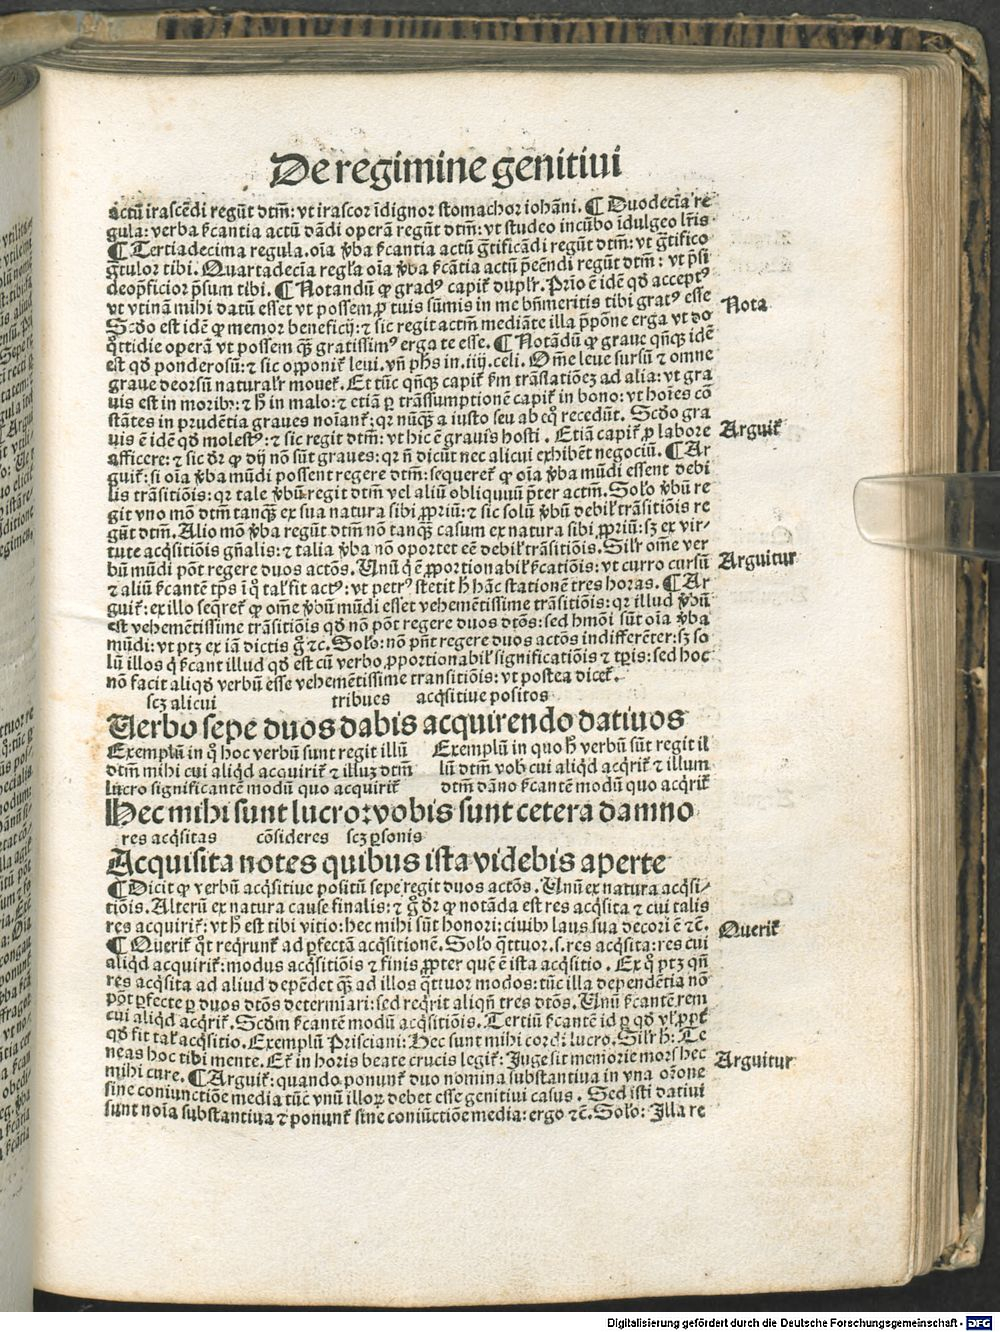 De regimine genitiui
actū irascēdi regūt dtm̄: vt irascor īdignor stomachor iohāni. ¶ Duodecīa re
gula: verba ſcantia actū dādi operā regūt dtm̄: vt studeo incūbo īdulgeo lr̄is
¶ Tertiadecima regula. oīa ꝟba ſcantia actū gr̄tificādi regūt dtm̄: vt gr̄tifico
gr̄tulor tibi. Quartadecīa regla oīa ꝟba ſcātia actū p̄eēndi regūt dtm̄: vt p̄si
deo p̄ficior p̄sum tibi. ¶ Notandū ꝙ gradꝰ capit̄ duplr̄. Prīo ē idē qd̓ acceptꝰ
vt vtinā mihi datū esset vt possem ꝓ tuis sūmis in me bn̄meritis tibi gratꝰ esse
Nota
Scd̓o est idē ꝙ memor beneficij: ⁊ sic regit actm̄ mediāte illa p̄pōne erga vt do
q̇ttidie operā vt possem qȝ̄ gratissimꝰ erga te esse. ¶ Notādū ꝙ graue qn̄qȝ idē
est qd̓ ponderosū: ⁊ sic opponit̄ leui. vn̄ phs̄ in .iiij. celi. Om̄e leue sursū ⁊ omne
graue deorsū naturalr̄ mouet̄. Et tūc qn̄qȝ capit̄ ẜm trāslatiōeȝ ad alia: vt gra
uis est in moribꝰ: ⁊ h̄ in malo: ⁊ etiā ꝑ trāssumptionē capit̄ in bono: vt hoīes cō
stātes in prudētia graues noīant̄: qꝛ nūqȝ̄ a iusto seu ab eq̇ recedūt. Scd̓o gra
uis ē idē qd̓ molestꝰ: ⁊ sic regit dtm̄: vt hic ē grauis hosti. Etiā capit̄ ꝓ labore
Arguit̄
afficere: ⁊ sic dr̄ ꝙ dij nō sūt graues: qꝛ n̄ dicūt nec alicui exhibēt negociū. ¶ Ar
guit̄: si oīa ꝟba mūdi possent regere dtm̄: sequeret̄ ꝙ oīa ꝟba mūdi essent debi
lis trāsitiōis: qꝛ tale ꝟbū regit dtm̄ vel aliū obliquuū p̄ter actm̄. Sol̓o ꝟbū re
git vno mō dtm̄ tanqȝ̄ ex sua natura sibi ꝓpriū: ⁊ sic solū ꝟbū debil̓ trāsitiōis re
gūt dtm̄. Alio mō ꝟba regūt dtm̄ nō tanqȝ̄ casum ex natura sibi ꝓpriū: sȝ ex vir⸗
tute acq̇sitiōis gn̄alis: ⁊ talia ꝟba nō oportet eē debil̓ trāsitiōis. Silr̄ om̄e ver
bū mūdi pōt regere duos actōs. Unū q̇ ē ꝓportionabil̓ ſcatiōis: vt curro cursū
Arguitur
⁊ aliū ſcantē tp̄s ī q̇ tal̓ fit actꝰ: vt petrꝰ stetit h̄ hāc stationē tres horas. ¶ Ar
guit̄: ex illo seq̄ret̄ ꝙ om̄e ꝟbū mūdi esset vehemētissime trāsitiōis: qꝛ illud ꝟbū
est vehemētissime trāsitiōis qd̓ nō pōt regere duos dtōs: sed hmōi sūt oīa ꝟba
mūdi: vt ptȝ ex iā dictis gͦ ⁊c̄. Sol̓o: nō pn̄t regere duos actōs indifferēter: sȝ so
lū illos q̇ ſcant illud qd̓ est cū verbo ꝓportionabil̓ significatiōis ⁊ tp̄is: sed hoc
nō facit aliqd̓ verbū esse vehemētissime transitiōis: vt postea dicet̄.
scȝ alicui tribues acq̇sitiue positos
Uerbo sepe duos dabis acquirendo datiuos
Exemplū in q̇ hoc verbū sunt regit illū
dtm̄ mihi cui aliqd̓ acquirit̄ ⁊ illuȝ dtm̄
lucro significantē modū quo acquirit̄
Exemplū in quo h̄ verbū sūt regit il
lū dtm̄ vob̓ cui aliqd̓ acq̇rit̄ ⁊ illum
dtm̄ dāno ſcantē modū quo acq̇rit̄
Hec mihi sunt lucro: vobis sunt cetera damno
res acq̇sitas cōsideres scȝ ꝑsonis
Acquisita notes quibus ista videbis aperte
¶ Dicit ꝙ verbū acq̇sitiue positū sepe regit duos actōs. Unū ex natura acq̇si⸗
tiōis. Alterū ex natura cause finalis: ⁊ gͦ dr̄ ꝙ notāda est res acq̇sita ⁊ cui talis
res acquirit̄: vt h̄ est tibi vitio: hec mihi sūt honori: ciuibꝰ laus sua decori ē ⁊c̄.
Querit̄
¶ Querit̄ q̇t req̇runt̄ ad ꝑfectā acq̇sitionē. Sol̓o q̇ttuor .s. res acq̇sita: res cui
aliqd̓ acquirit̄: modus acq̇sitiōis ⁊ finis ꝓpter quē ē ista acq̇sitio. Ex q̇ ptȝ qn̄
res acq̇sita ad aliud depēdet qȝ̄ ad illos q̇ttuor modos: tūc illa dependētia nō
pōt ꝑfecte ꝑ duos dtōs determīari: sed req̇rit aliqn̄ tres dtōs. Unū ſcantē rem
cui aliqd̓ acq̇rit̄. Scd̓m ſcantē modū acq̇sitiōis. Tertiū ſcantē id ꝑ qd̓ vl̓ ꝓpt̄
qd̓ fit tal̓ acq̇sitio. Exemplū Prisciani: Hec sunt mihi cordi lucro. Silr̄ h̄: Te
neas hoc tibi mente. Et̄ in horis beate crucis legit̄: Iuge sit memorie mors hec
Arguitur
mihi cure. ¶ Arguit̄: quando ponunt̄ duo nomina substantiua in vna orōne
sine coniunctiōe media tūc vnū illoꝝ debet esse genitiui casus. Sed isti datiui
sunt noīa substantiua ⁊ ponunt̄ sine coniūctiōe media: ergo ⁊c̄. Sol̓o: Illa re
Digitalisierung gefördert durch die Deutsche Forschungsgemeinschaft - DFG